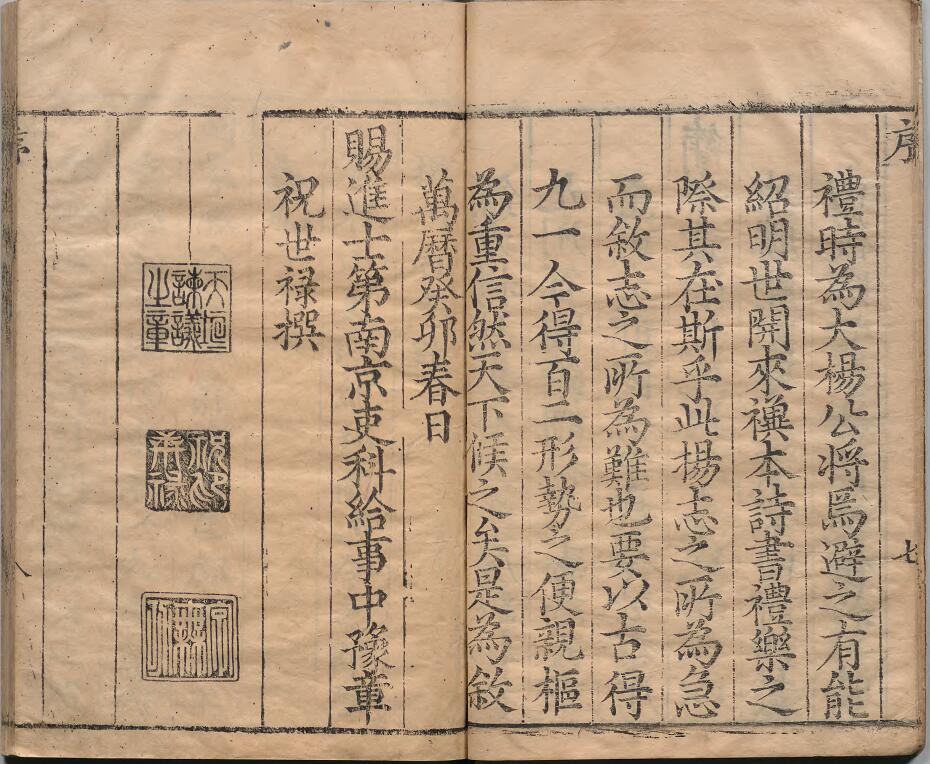 序
七
禮時為大楊公將焉避之有能
紹明世開來禩本詩書禮樂之
際其在斯乎此揚志之所為急
而敘志之所為難也要以古得
九一今得百二形勢之便親樞
為重信然天下候之矣是為敘
萬曆癸卯春日
賜進士第南京吏科給事中豫章
祝世祿撰
天垣
諫議
之章
八